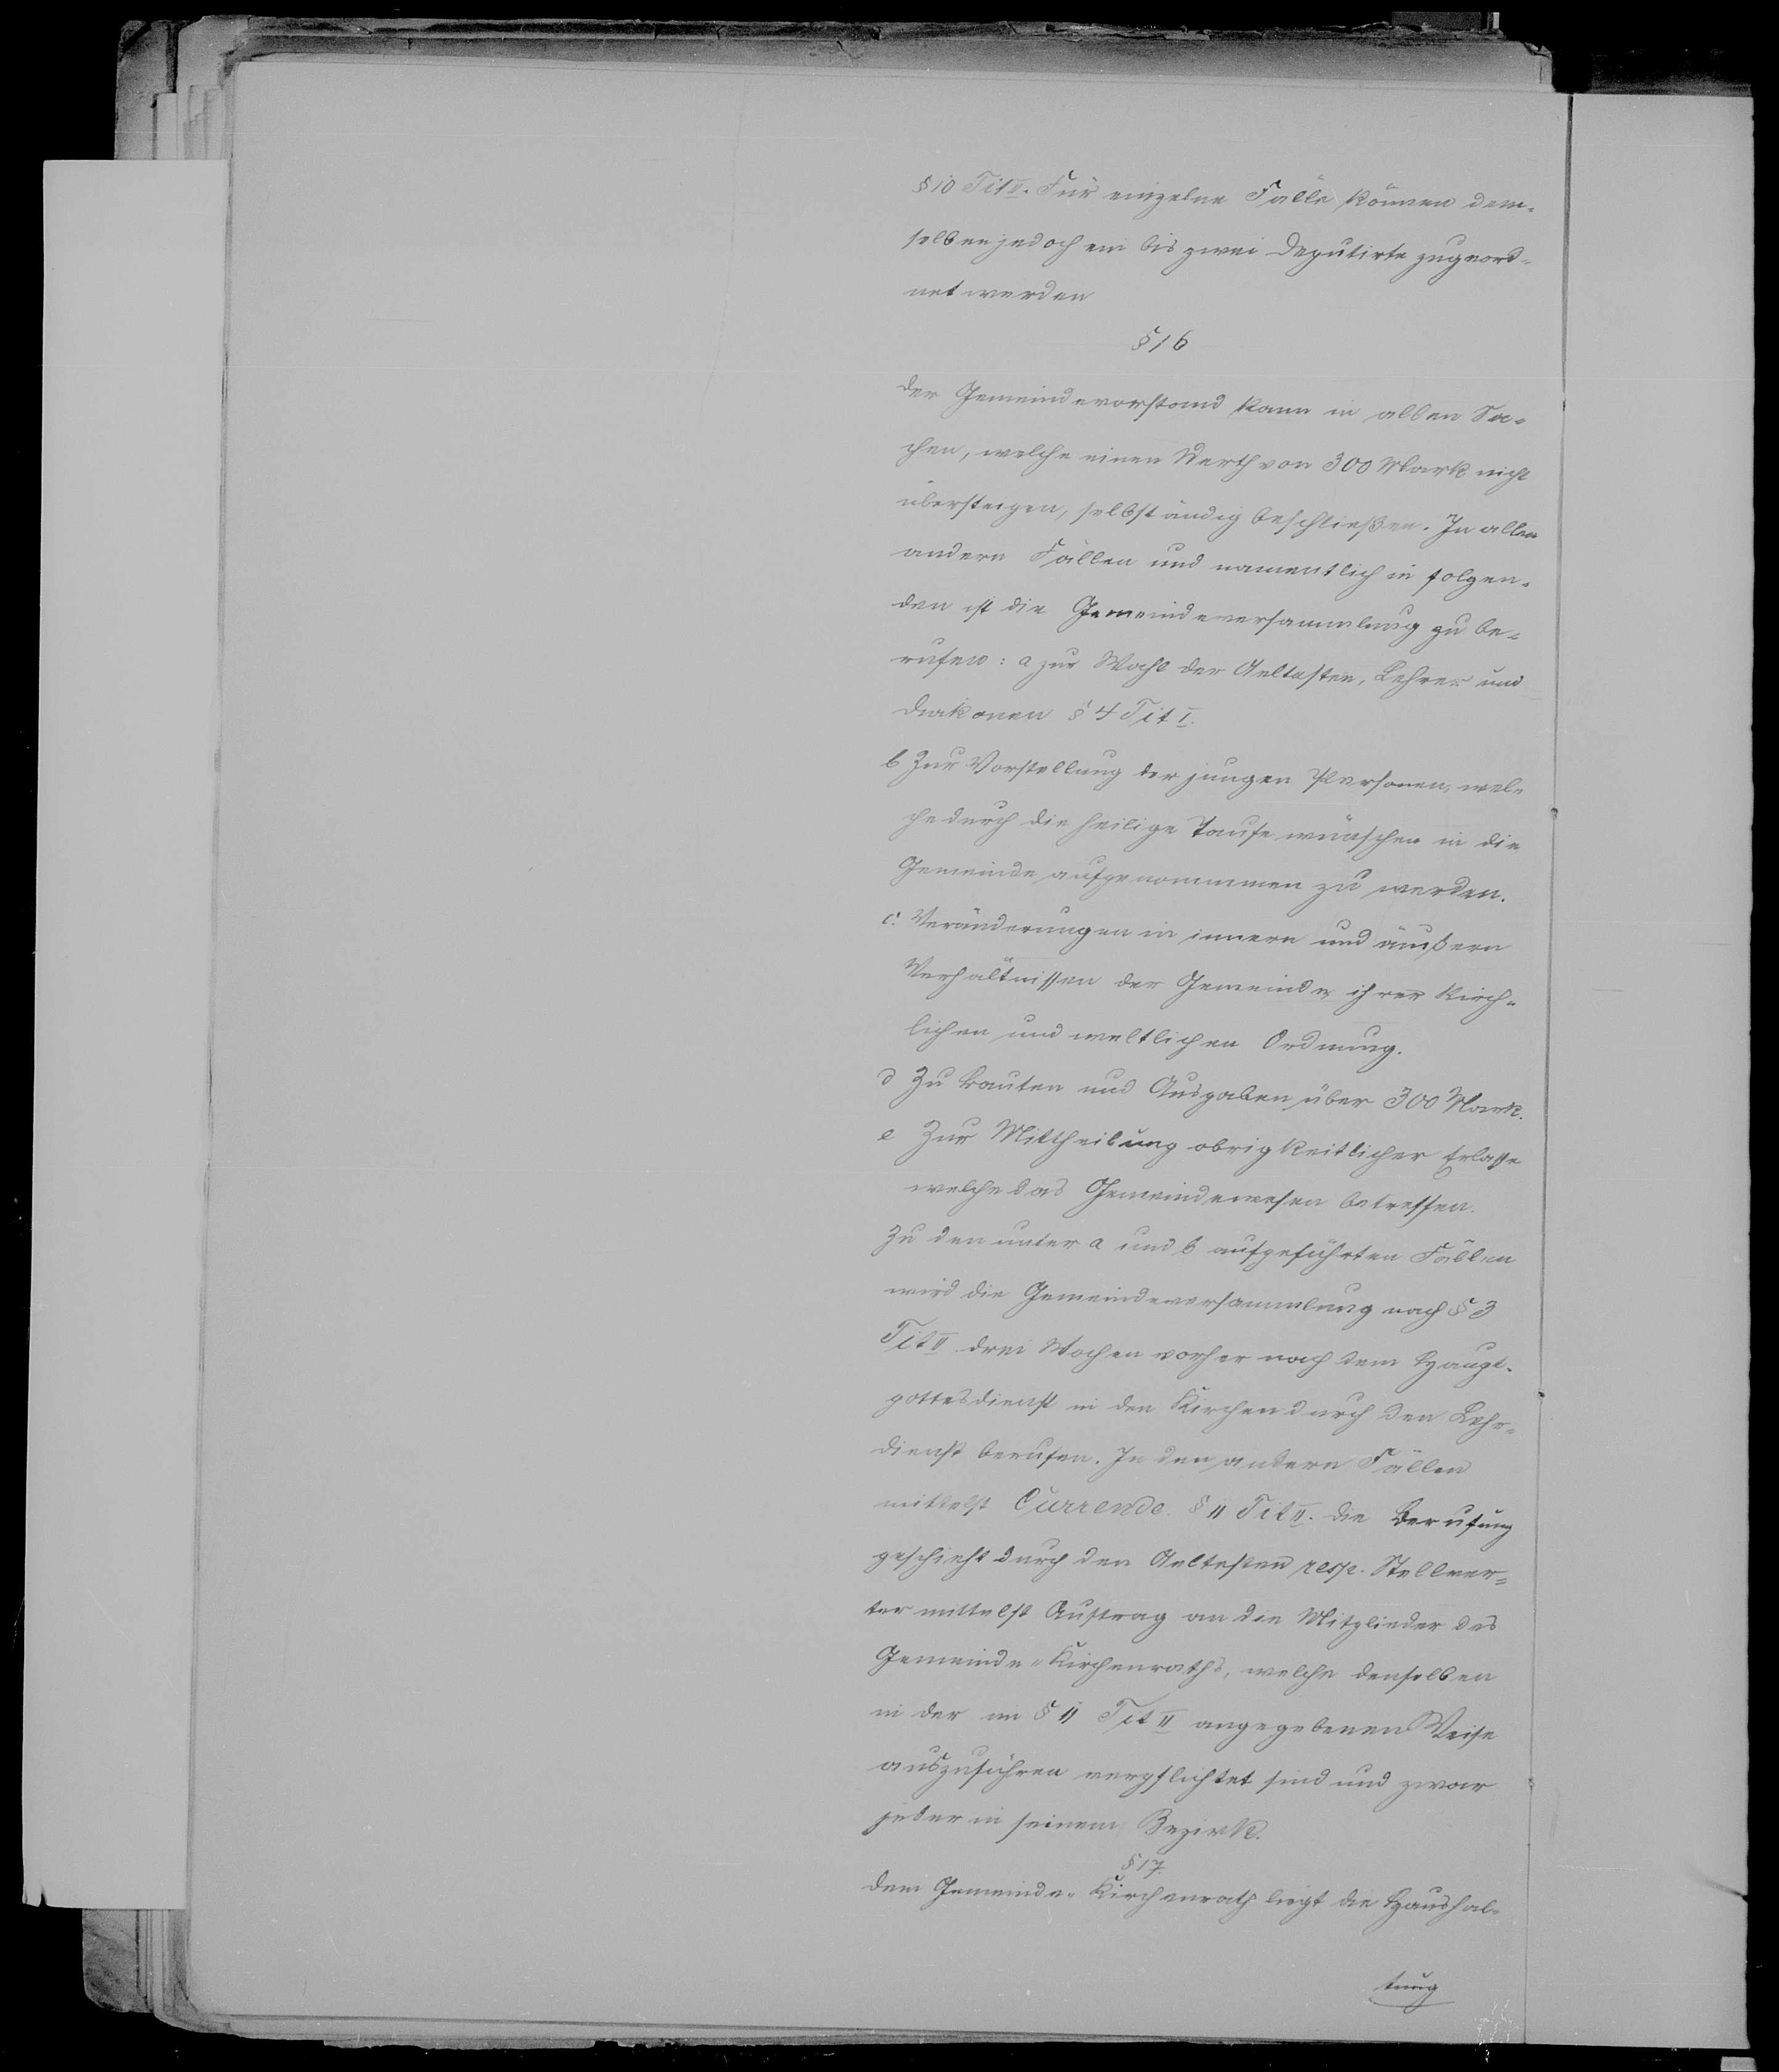 § 10 Tit II. Für einzelne Fälle können dem-
selben jedoch ein bis zwei Deputirte zugeord-
net werden
§ 16
Der Gemeindevorstand kann in allen Sa-
chen, welche einen Werth von 300 Mark nicht
übersteigen, selbständig beschließen. In allen
andern Fällen und namentlich in folgen-
den ist die Gemeindeversammlung zu be-
rufen: a zur Wahl der Aeltesten, Lehrer und
Diakonen § 4 Tit I.
b Zur Vorstellung der jungen Personen, wel-
che durch die heilige Taufe wünschen in die
Gemeinde aufgenommmen zu werden.
c. Veränderungen in innern und äußern
Verhältnissen der Gemeinde, ihrer kirch-
lichen und weltlichen Ordnung.
d Zu Bauten und Ausgaben über 300 Mark.
e Zur Mittheilung obrigkeitlicher Erlasse
welche das Gemeindewesen betreffen.
Zu den unter a und b aufgeführten Fällen
wird die Gemeindeversammlung nach § 3
Tit II drei Wochen vorher nach dem Haupt-
gottesdienst in den Kirchen durch den Lehr-
dienst berufen. In den andern Fällen
mittelst Currende. § 11 Tit II. Die Berufung
geschieht durch den Aeltesten resp. Stellver-
ter mittelst Auftrag an die Mitglieder des
Gemeinde-Kirchenraths, welche denselben
in der im § 11 Tit II angegebenen Weise
auszuführen verpflichtet sind und zwar
jeder in seinem Bezirk.
§ 17
Dem Gemeinde-Kirchenrath liegt die Haushal-
tung